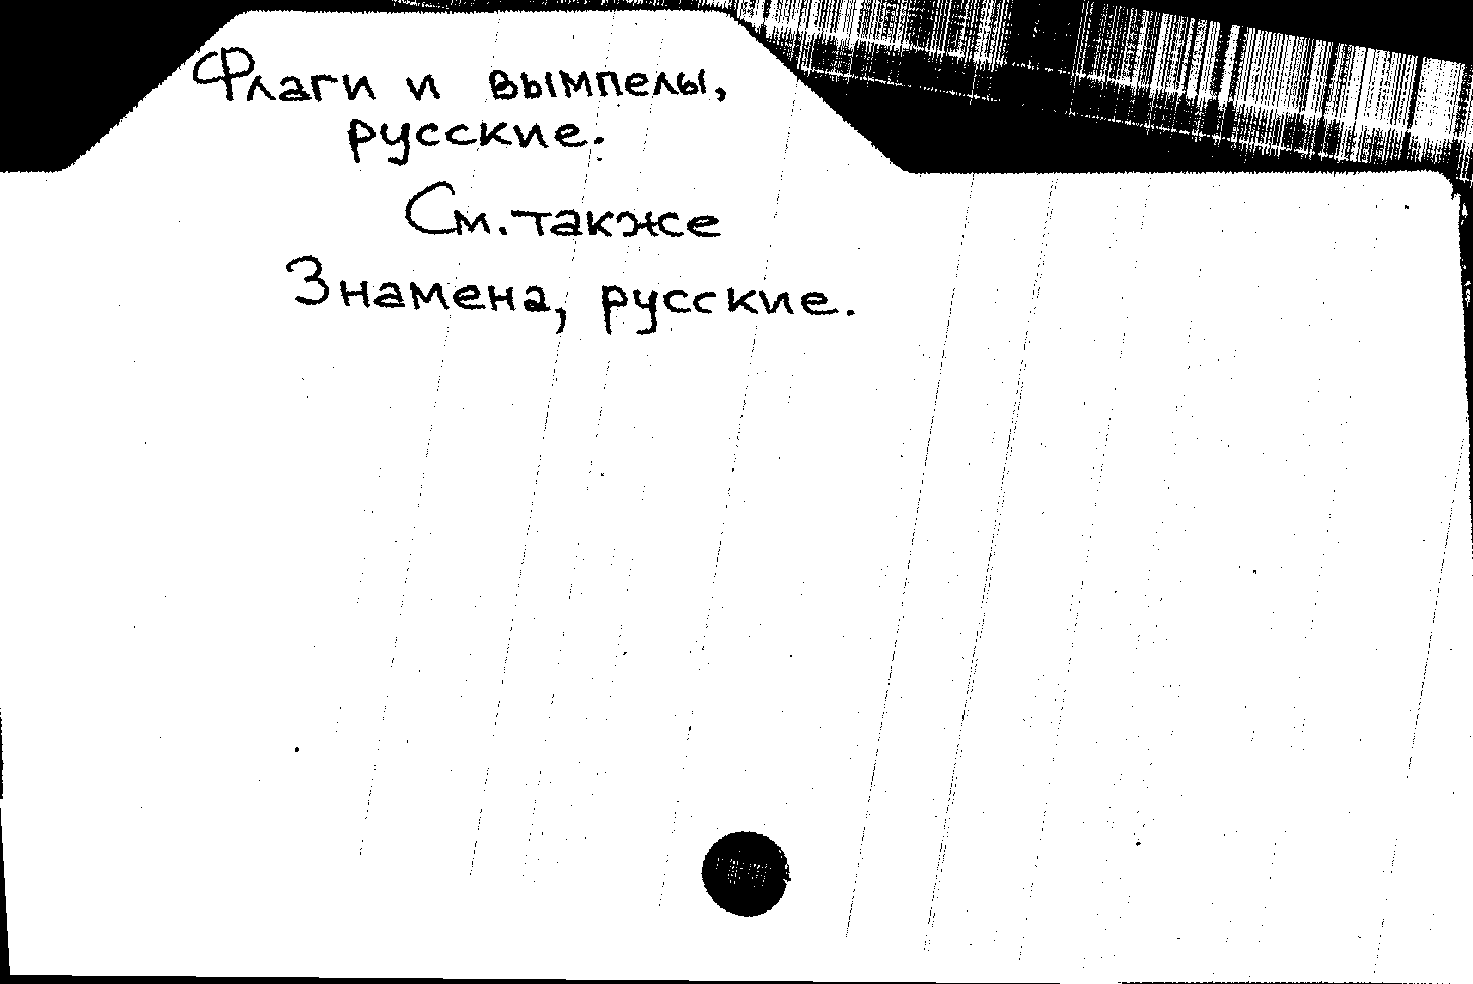 Флаги и вымпелы,
русские.
См. также
Знамена, русские.